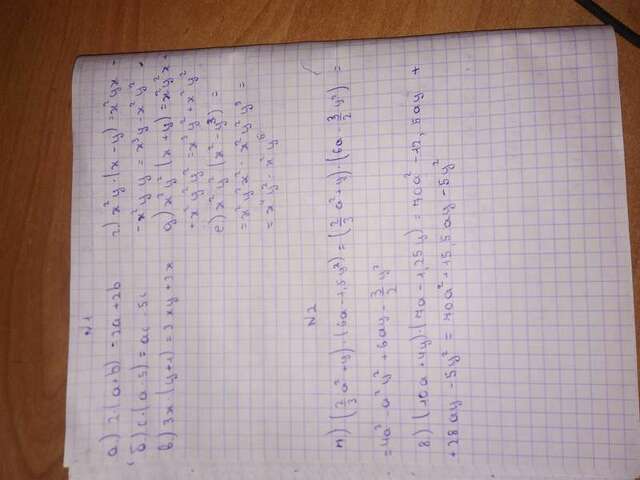 N1
а) 2·(a+b) = 2a+2b
б) c·(a-5) = ac-5c
в) 3x·(y+1) = 3xy+3x
г) x²y·(x-y) = x²yx-
-x²y y = x³y-x²y²
д) x²y²(x+y) = x²y²x+
+x²y²y = x³y²+x²y²
е) x²y²(x²-y³) =
= x²y²x² - x²y²y³ =
= x⁴y² - x²y⁶
N2
7) (2/3 a²+y)·(6a-1,5y²) = (2/3 a²+y)·(6a-3/2 y²) =
= 4a²-a²y²+6ay-3/2 y²
8) (10a+4y)·(7a-1,25y) = 70a²-12,5ay+
+28ay-5y² = 70a²+15,5ay-5y²